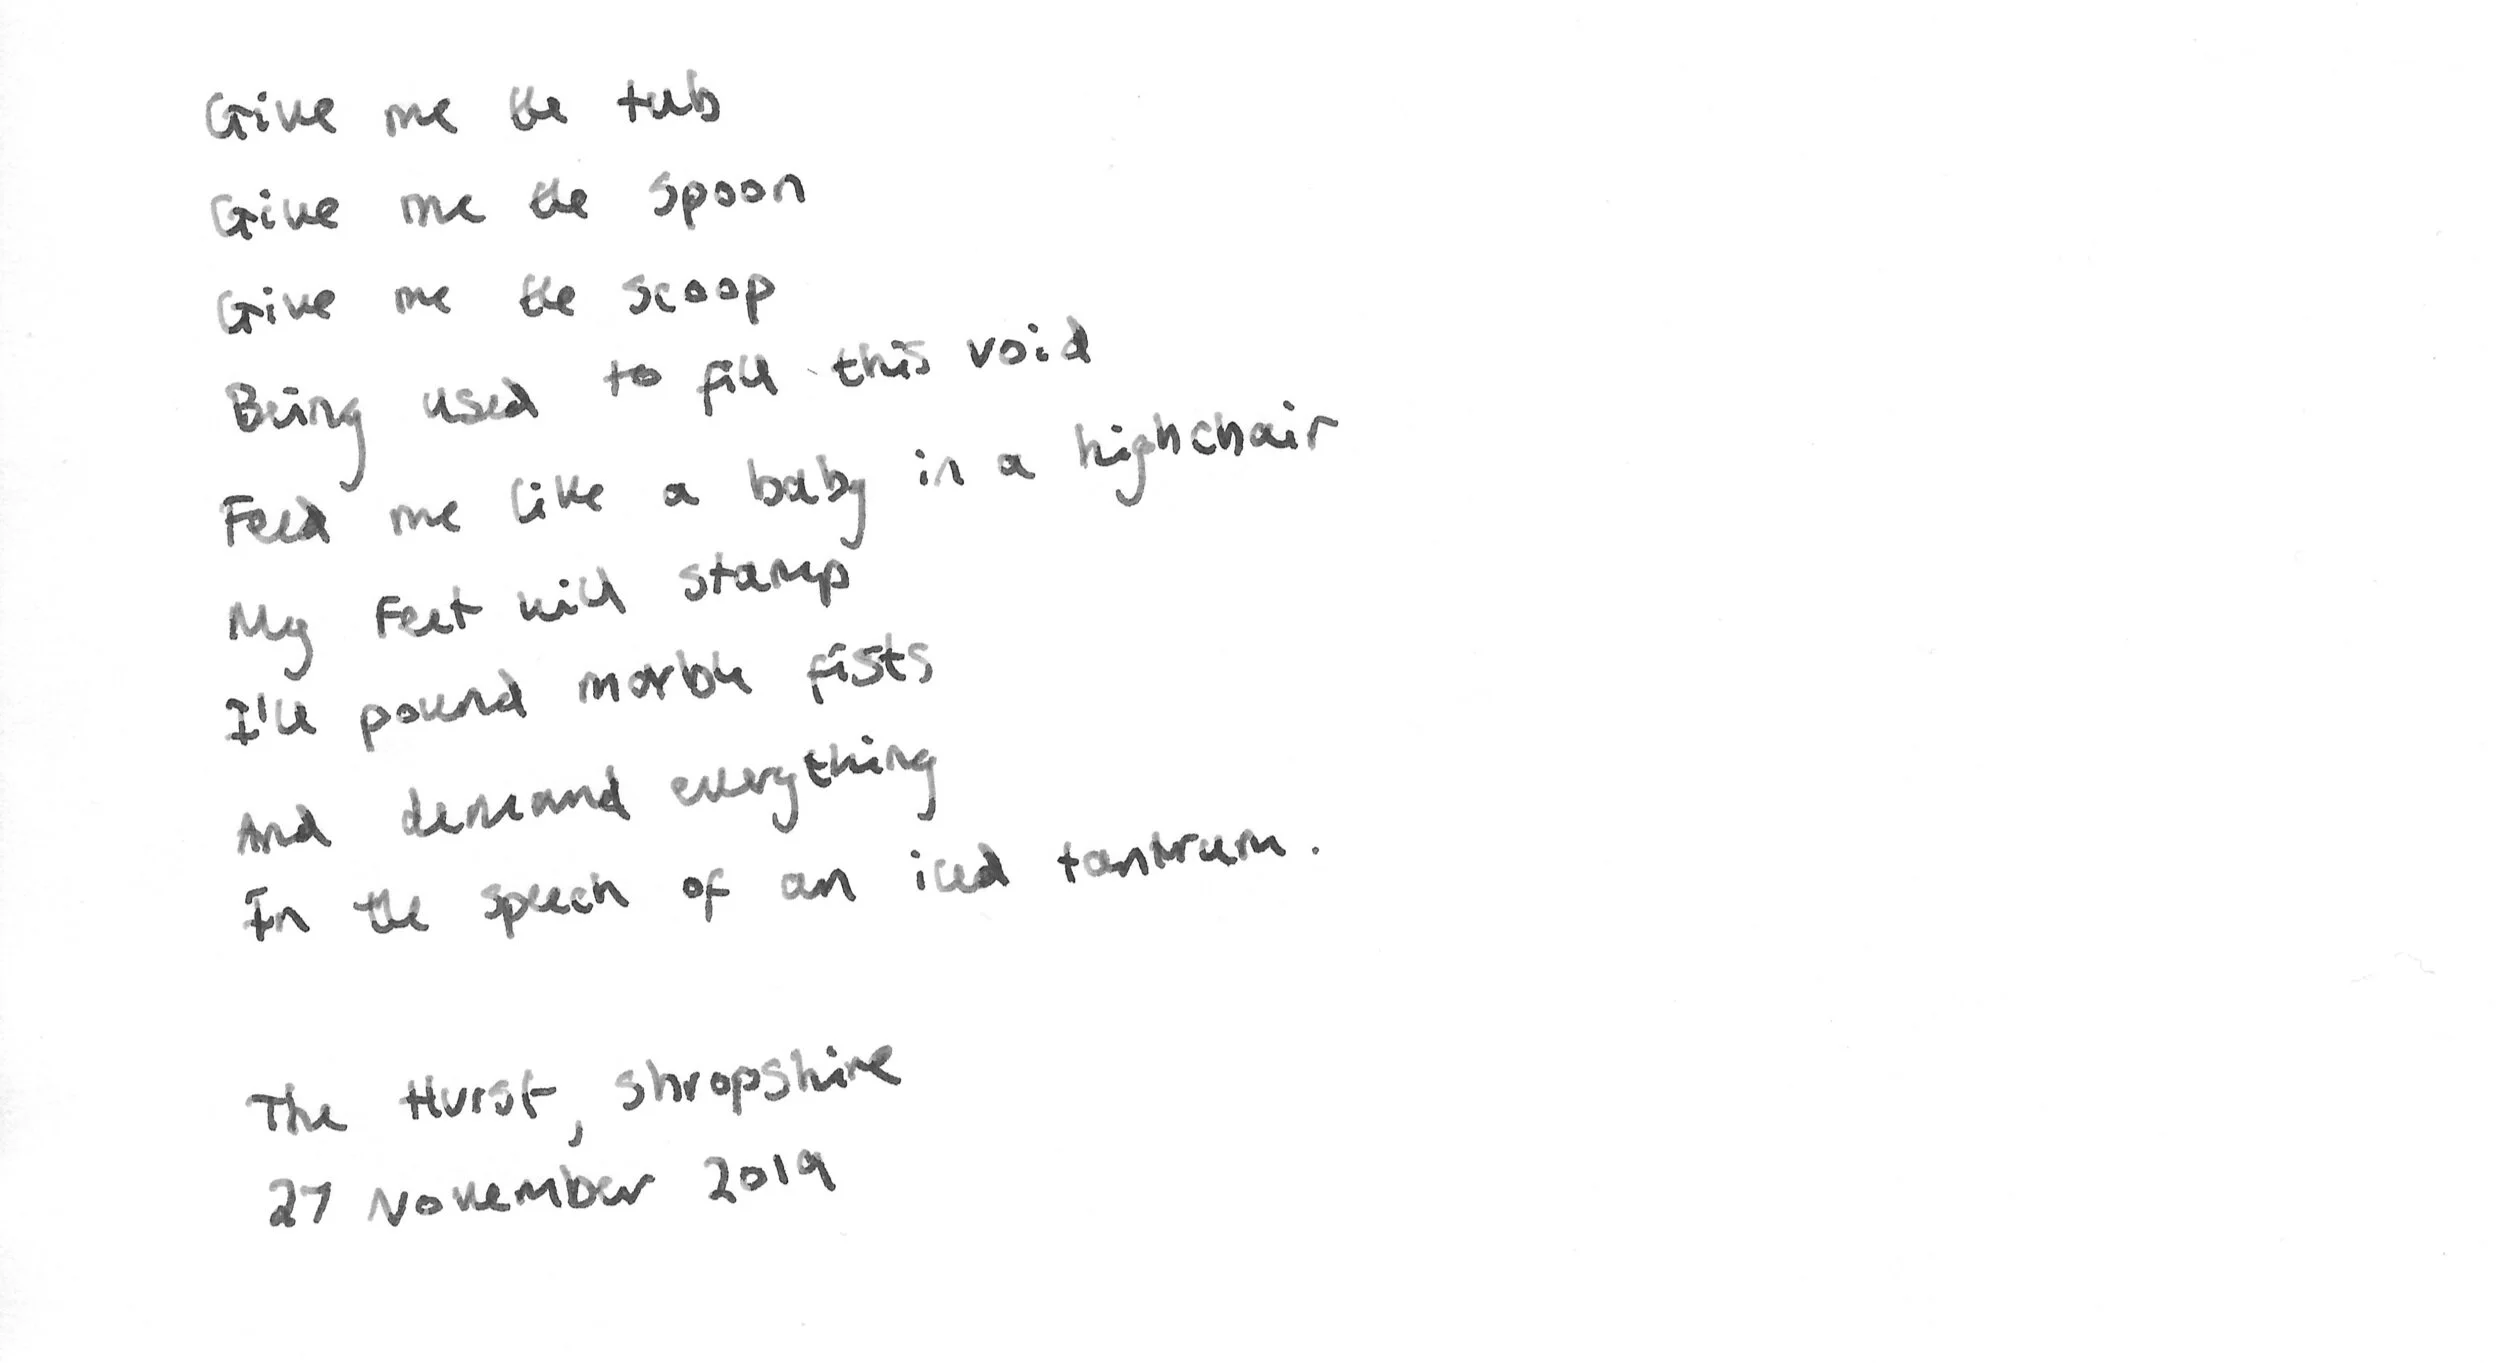 Give me the tub
Give me the spoon
Give me the scoop
Being used to fill this void
Feed me like a baby in a highchair
My feet will stamp
I'll pound marble fists
And demand everything
In the speech of an iced tantrum.
The Hurst, Shropshire
27 November 2019